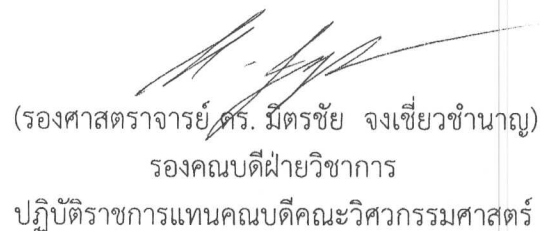 (รองศาสตราจารย์ ดร. มิตรชัย จงเชี่ยวชำนาญ)
รองคณบดีฝ่ายวิชาการ
ปฏิบัติราชการแทนคณบดีคณะวิศวกรรมศาสตร์